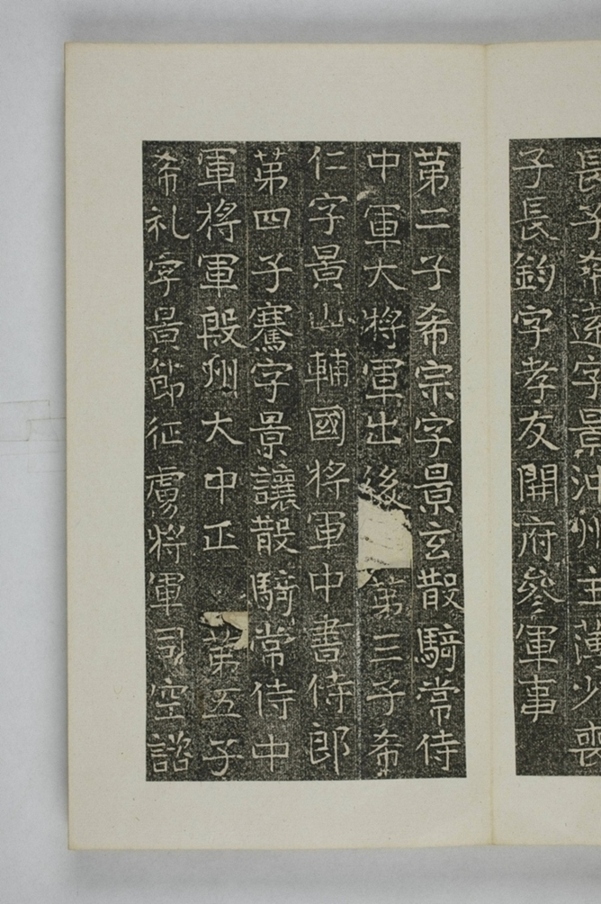 長子希遠字景沖州主薄少喪
子長鈞字孝友開府參軍事
第二子希宗字景玄散騎常侍
中軍大將軍出後第三子希
仁字景山輔國將軍中書侍郎
第四子騫字景讓散騎常侍中
軍將軍殷州大中正第五子
希礼字景節征虜將軍司空諮